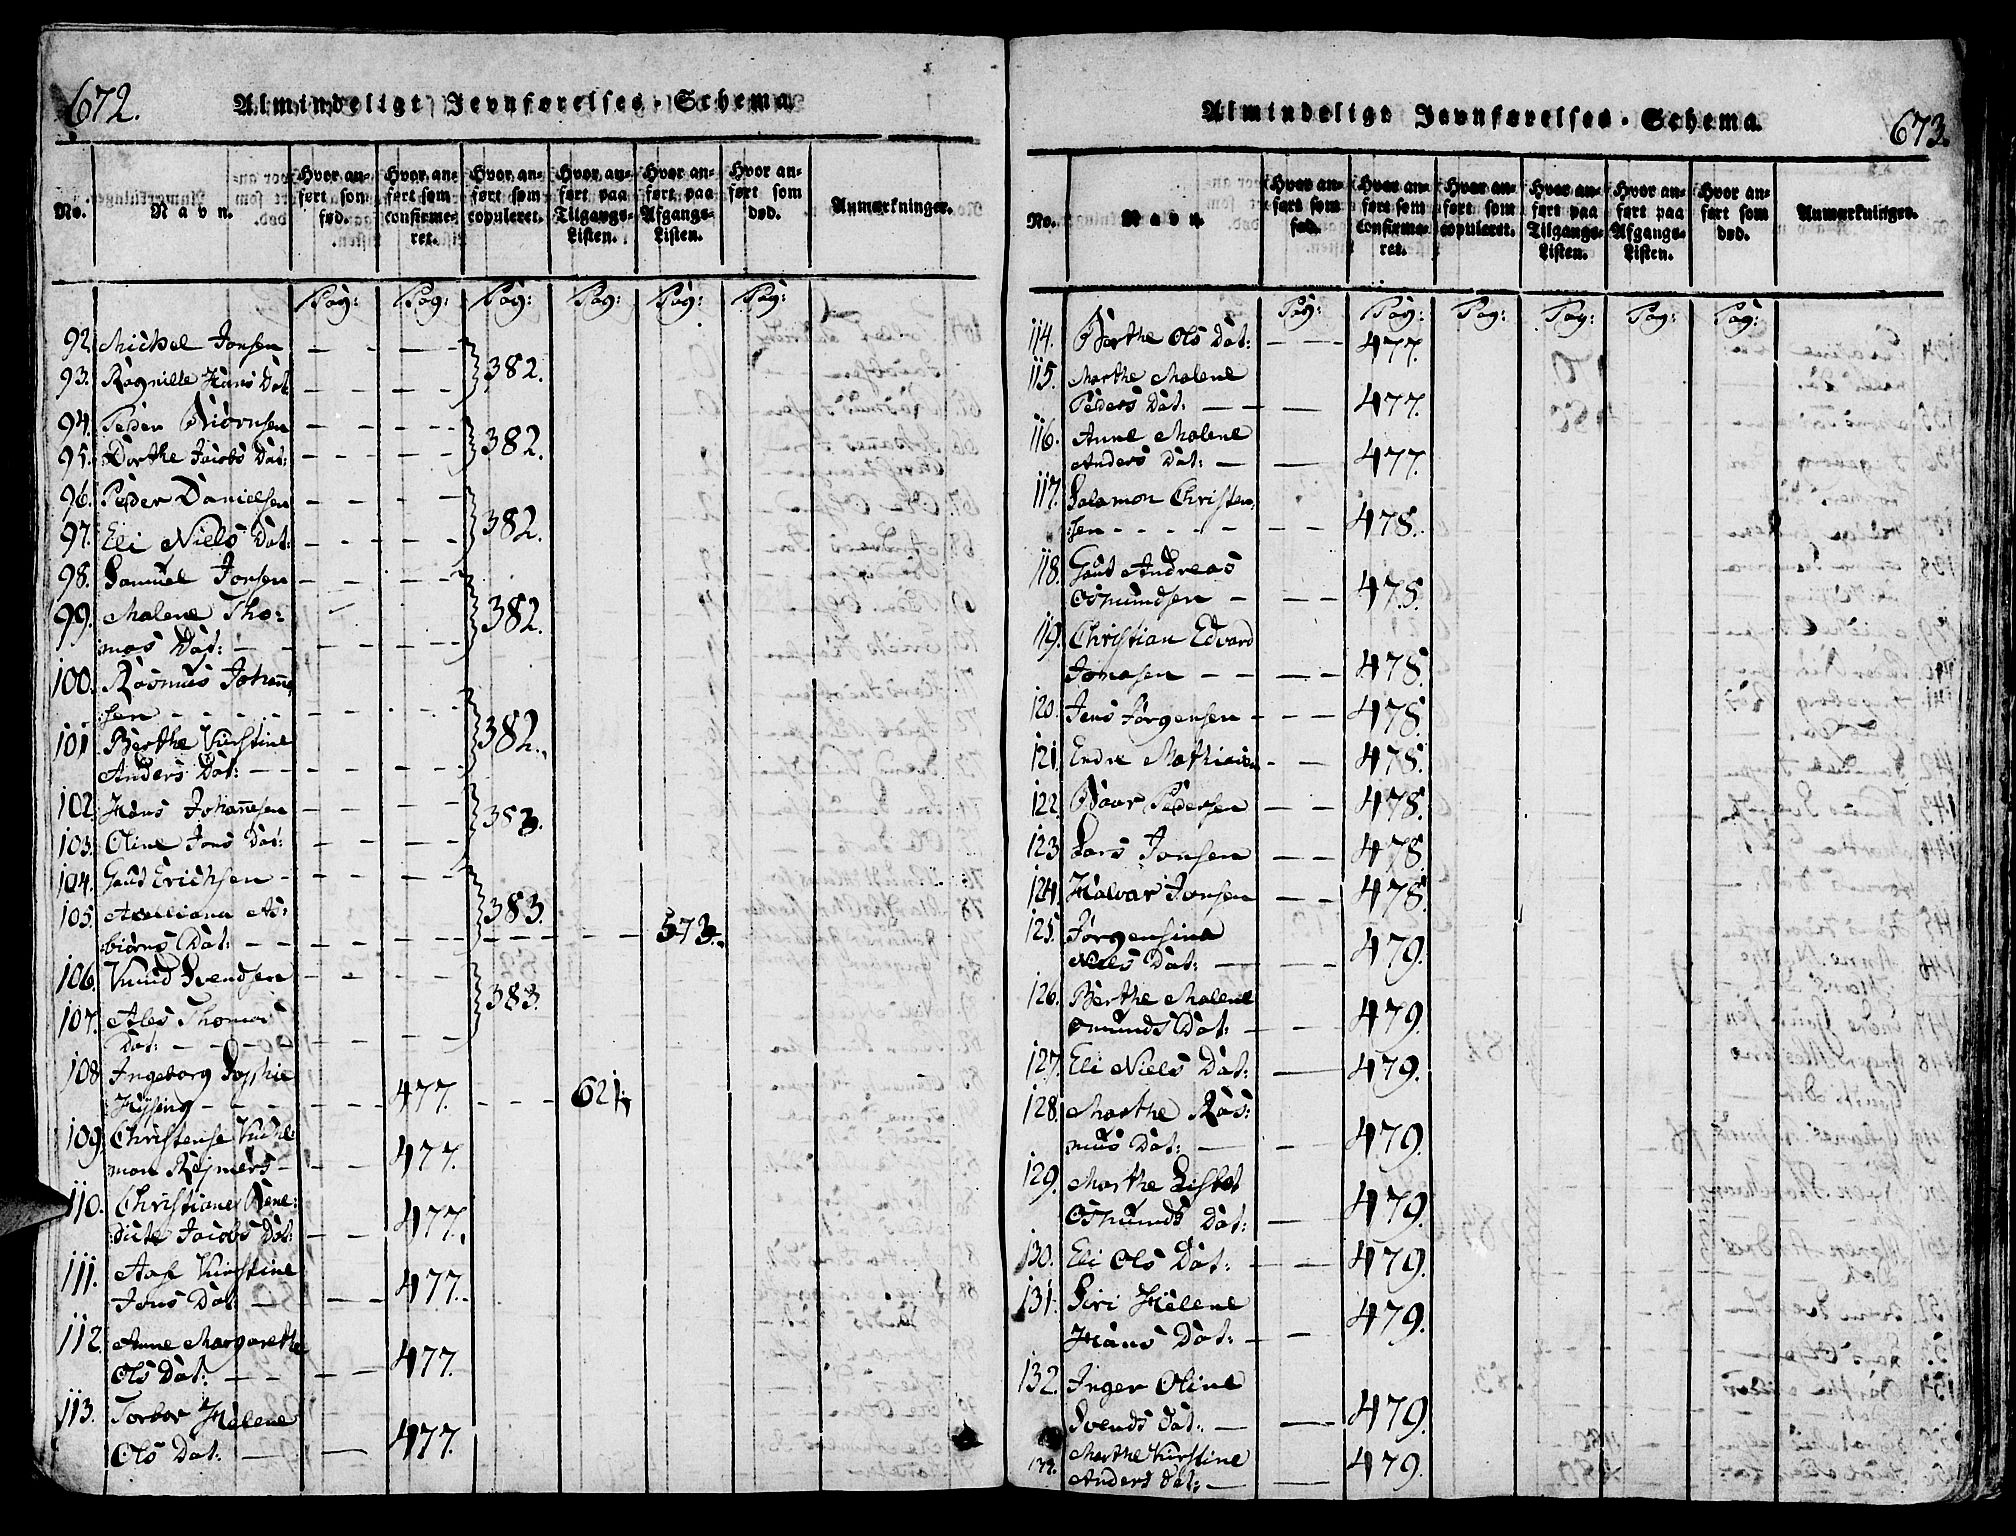 672.
Almindeligt Jevnførelses-Schema
No.
Navn.
Hvor anført som fød.
Hvor anført som confirmeret.
Hvor anført som copuleret.
Hvor anført paa Tilgangs-Listen.
Hvor anført paa Afgangs-Listen.
Hvor anført som død.
Anmærkninger.
Pag: Pag: Pag: Pag: Pag: Pag:
92. Michel Jonsen
93. Ragnille Hans Dat 382.
94. Peder Biørnsen
95. Dorthe Jacobs Dat: 382.
96. Peder Danielsen
97. Eli Niels Dat: 382.
98. Samuel Jonsen
99. Malene Tho:
mas Dat: 382.
100. Rasmus Johanne
sen
101 Berthe Kirstine
Anders Dat: 382.
102. Hans Johannesen
103. Oline Jons Dat: 383.
104. Gaut Erichsen
105. As:
biørns Dat: 383. 573.
106. Knud Svendsen
107. Ales Thomas
Dat: 383.
108. Ingeborg Sophie
Kysing 477. 621.
109. Christense
Rejmers 477.
110. Christiane Bene:
dicte Jacobs Dat: 477.
111. Aase Kirstine
Jons Dat: 477.
112. Anne Margarethe
Ols Dat: 477.
113. Torbor Helene
Ols Dat: 477.
Almindeligt Jevnførelses-Schema.
673.
No.
Navn.
Hvor anført som fød.
Hvor anført som confirmeret.
Hvor anført som copuleret.
Hvor anført paa Tilgangs-Listen.
Hvor anført paa Afgangs-Listen.
Hvor anført som død.
Anmærkninger.
Pag: Pag: Pag: Pag: Pag: Pag:
114. Berthe Ols Dat: 477.
115. Marthe Malene
Peders Dat: 477.
116. Anne Malene
Anders Dat: 477.
117. Salamon Christen
sen 478.
118. Gaut Andreas
Osmundsen 478.
119. Christian Edvard
Jonasen 478.
120. Jens Jørgensen 478.
121. Endre Mathiesen 478.
122. Baar Pedersen 478.
123 Lars Jonsen 478
124. Halvar Jonsen 478.
125. Jørgensine
Niels Dat: 479.
126. Berthe Malene
Omunds Dat: 479.
127. Eli Niels Dat: 479.
128. Marthe Ras:
mus Dat: 479.
129. Marthe Lisbet
Osmunds Dat: 479.
130. Eli Ols Dat: 479.
131. Siri Helene
Hans Dat: 479.
132. Inger Oline
Svends Dat: 479.
133. Marthe Kirstine
Anders Dat: 479.